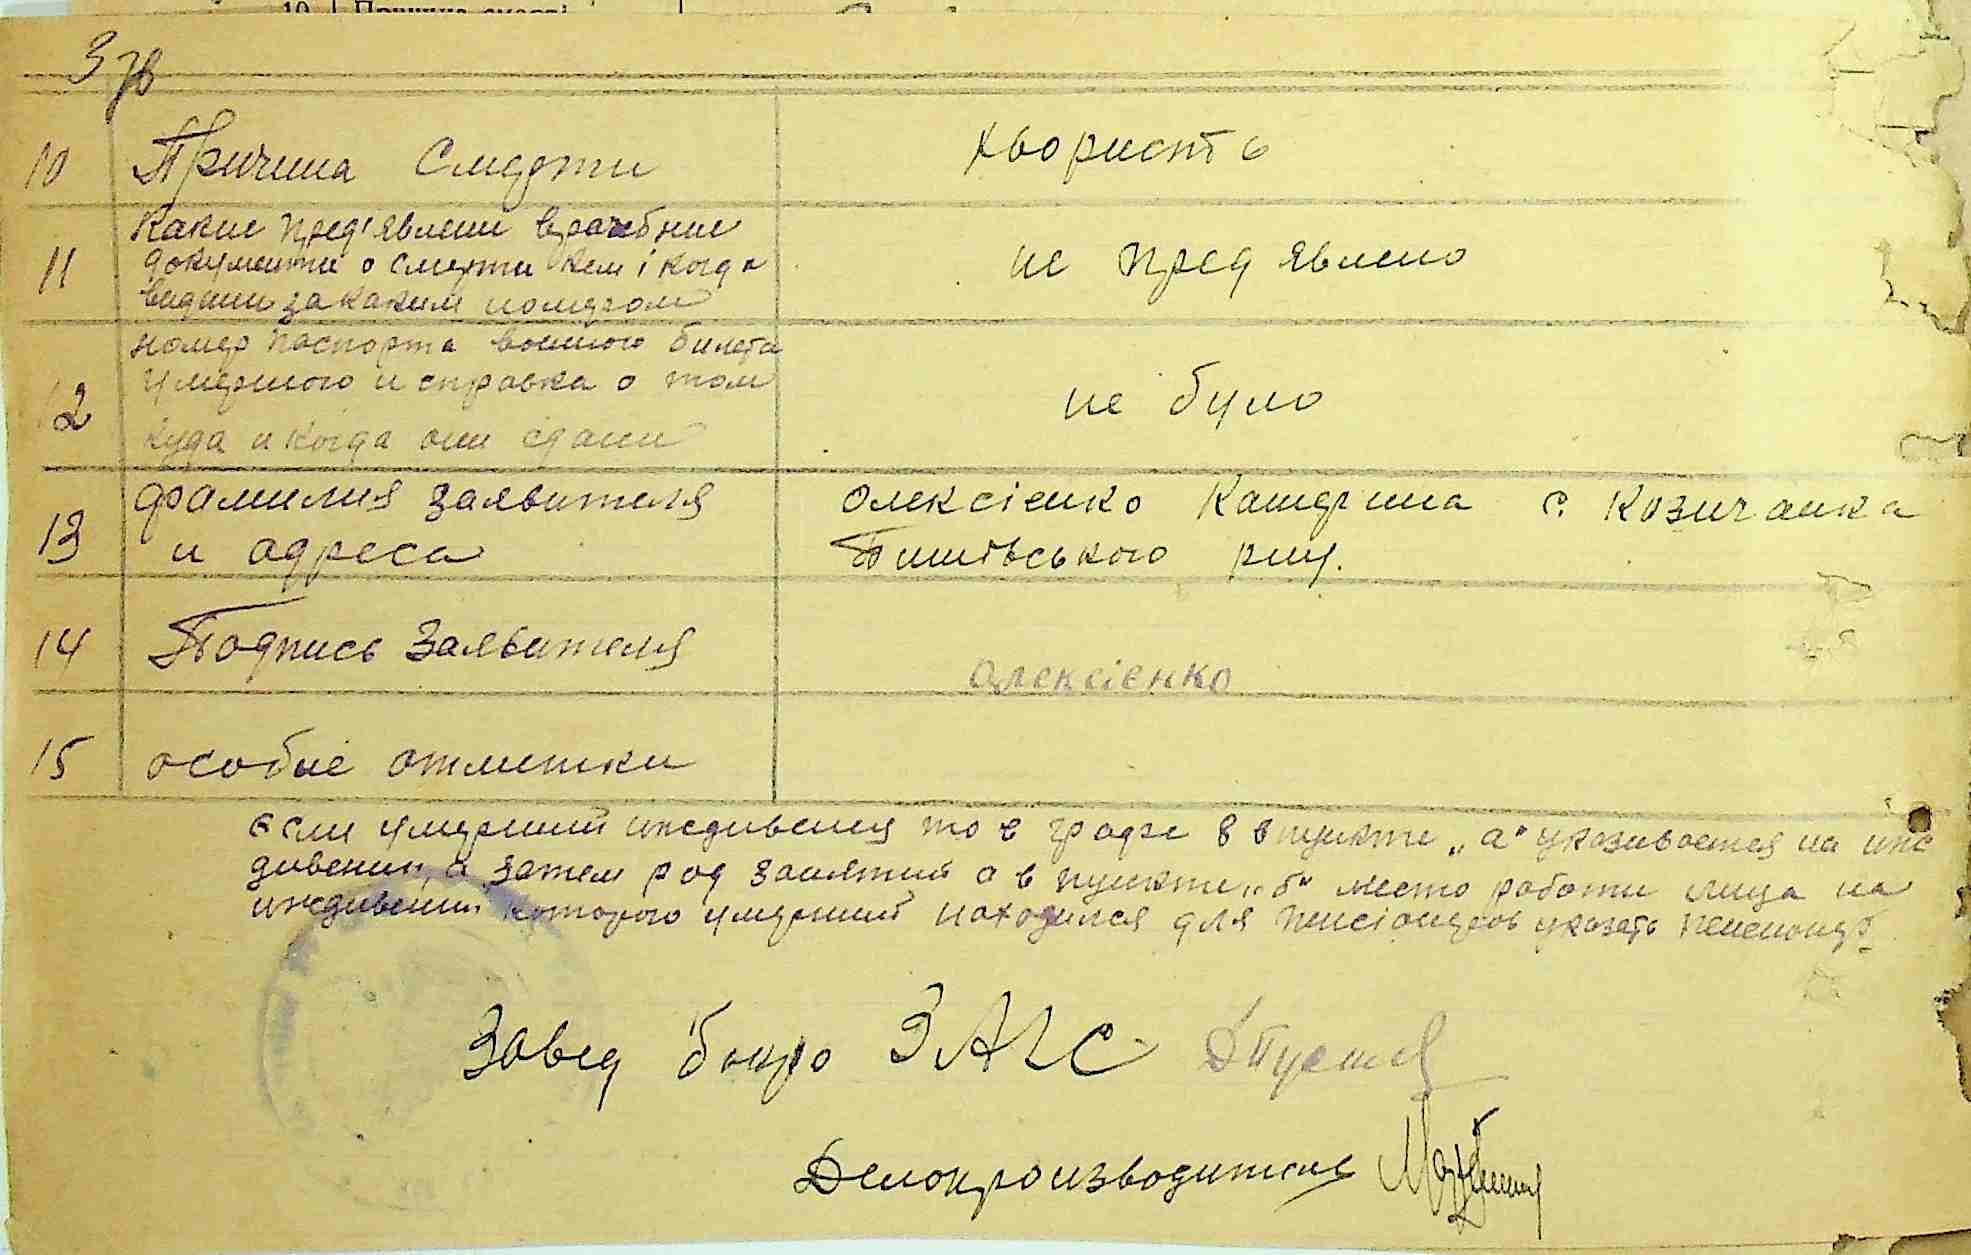 10 Причина смерті
3 зв
10 Причина Смерти хвористь
11 Какие пред'явлени врачебние
документи о смерти кем і когда не пред явлено
видани за каким номером
12 номер паспорта военого билета
умершого и справка о том не було
куда и когда они сдани
13 фамилия заявителя Олексієнко Катерина с. Козичанка
и адреса Бишівського рну.
14 Подпись Заявителя Олєксієнко
15 особые отметки
Если умерший иждивения то в графе 8 в пункте „а" указивается на ижс
дивении, а затем род занятий а в пункте „б" место работи лица на
иждивении которого умерший находился для пенсіонеров указать пенсионер
Завед бюро ЗАГС
Делопроизводитель